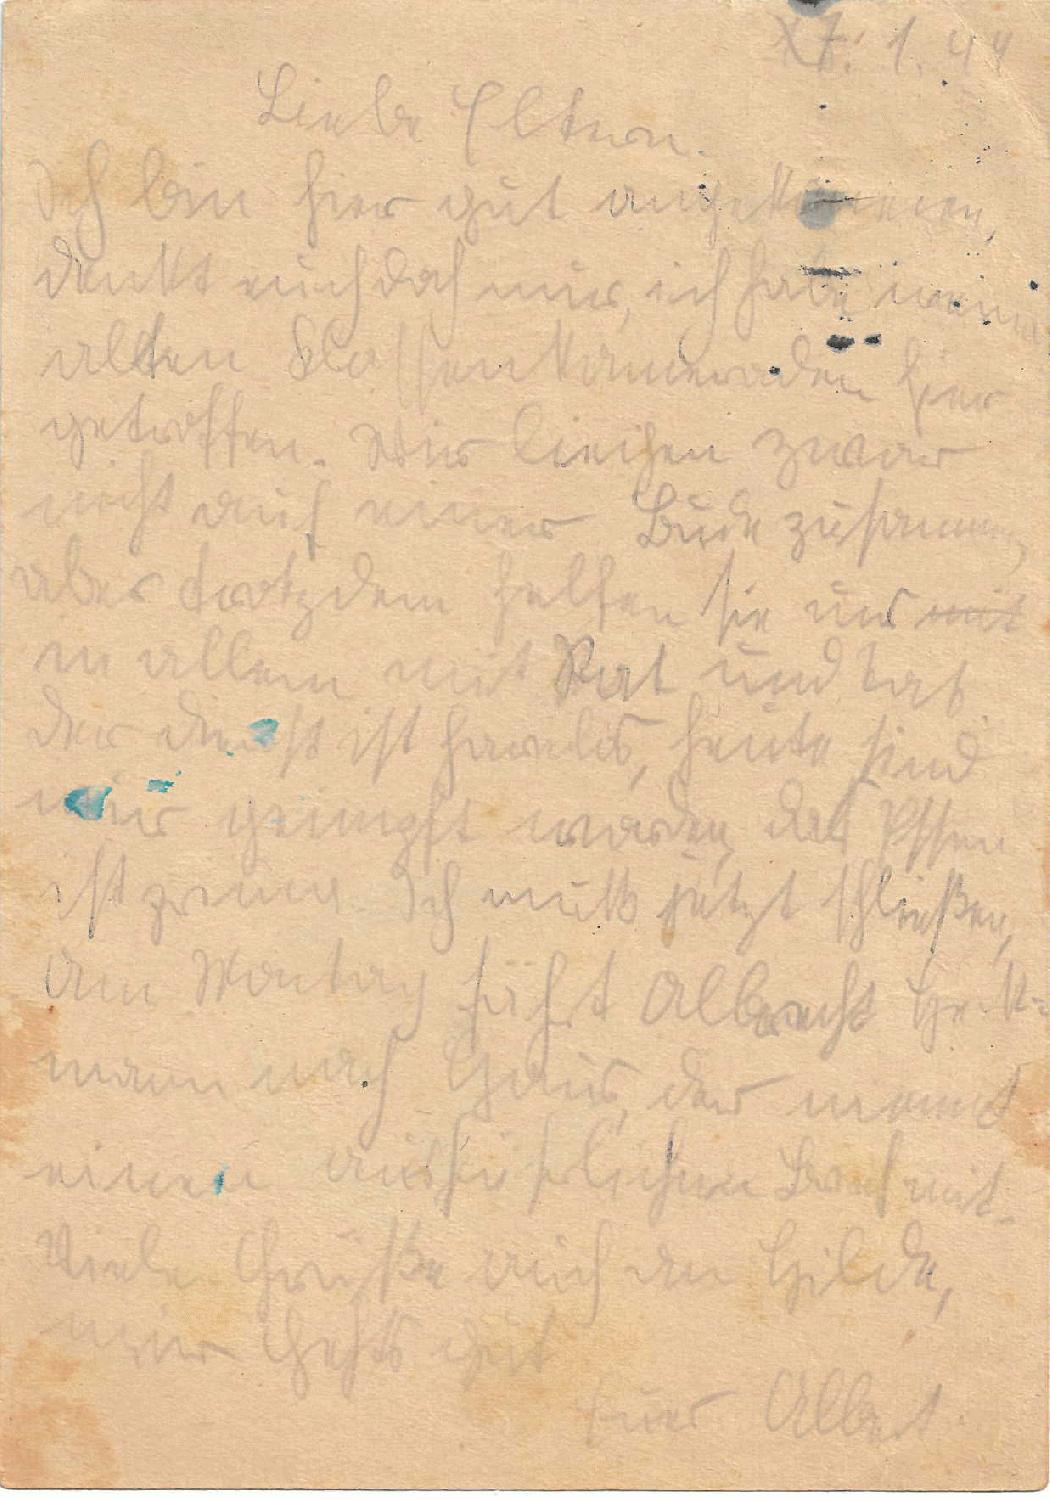 1.44
Liebe Eltern.
Ich bin hier gut angekommen,
denkt euch doch nur, ich habe meine
alten Klassenkameraden hier
getroffen. Wir liegen zwar
nicht auf einer Bude zusammen,
aber trotzdem helfen sie uns mit
in allem mit Rat und Tat.
Der Dienst ist harmlos, heute sind
wir geimpft worden, das Essen
ist prima. Ich muß jetzt schließen,
Am Montag fährt Albrecht
mann nach Haus, der nimmt
einen ausführlichen Brief mit.
Viele Grüße auch an Hilde,
mir gehts gut
Euer Albert.